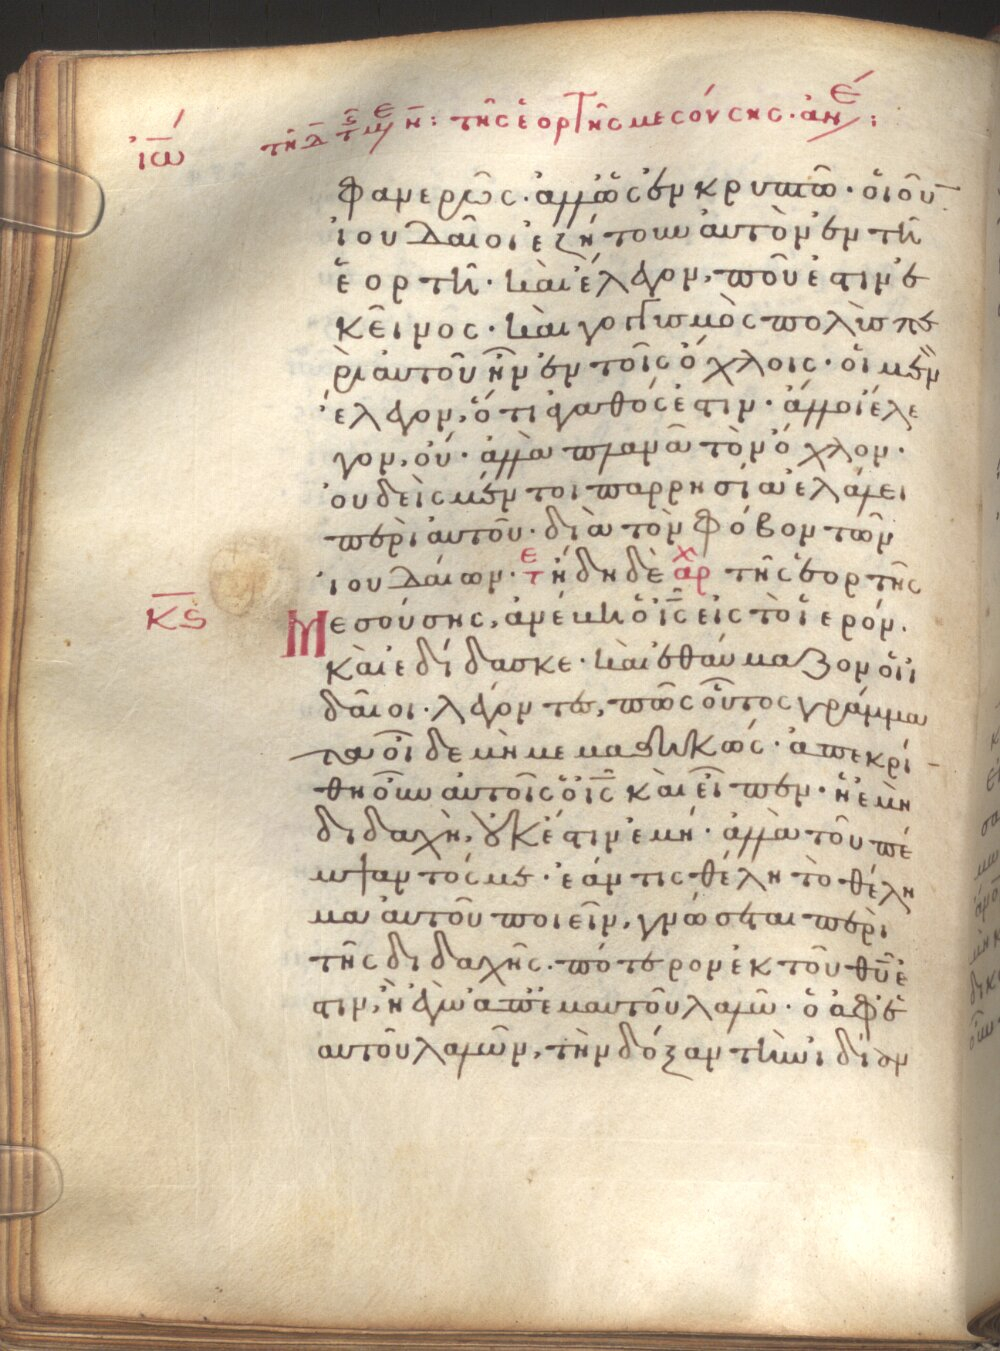 ἰω
τῇ δ τ ε : τῆς ἑορτῆς μεσούσης · ἀνε :
φανερῶς · ἀλλ ὡς ἐν κρυπτῶ · οἱ οὖ
ἰουδαῖοι ἐζήτουν αὐτὸν ἐν τῆ
ἑορτῆ · καὶ ἔλεγον, ποῦ ἐστιν ἐ
κεῖνος · καὶ γογγυσμὸς πολὺς πε
ρὶ αὐτοῦ ἦν ἐν τοῖς ὄχλοις · οἱ μὲν
ἔλεγον, ὅτι ἀγαθός ἐστιν · ἄλλοι ἔλε
γον, οὔ · ἀλλὰ πλανᾶ τὸν ὄχλον ·
οὐδεὶς μέν τοι παρρησία ἐλάλει
περὶ αὐτοῦ · διὰ τὸν φόβον τῶν
ἰουδαίων · τε ἤδη δὲ ἀρχ τῆς ἑορτῆς
κς
Μεσούσης, ἀνέβη ὁ ις εἰς τὸ ἱερόν ·
καὶ ἐδίδασκε · καὶ ἐθαύμαζον οἱ ἰ
δαῖοι · λέγοντες, πῶς οὗτος γράμμα
τα οἶδε μὴ μεμαθηκώς · ἀπεκρί
θη οὖν αὐτοῖς ὁ ις καὶ εἶπεν · ἡ ἐμὴ
διδαχὴ, οὐκ ἔστιν ἐμή · ἀλλὰ τοῦ πέ
μψαντός με · ἐάν τις θέλη τὸ θέλη
μα αὐτοῦ ποιεῖν, γνώσεται περὶ
τῆς διδαχῆς · πότερον ἐκ τοῦ θυ ἐ
στιν, ἢ ἐγὼ ἀπ ἐμαυτοῦ λαλῶ · ὁ ἀφ ἑ
αυτοῦ λαλῶν, τὴν δόξαν τὴν ἰδίαν